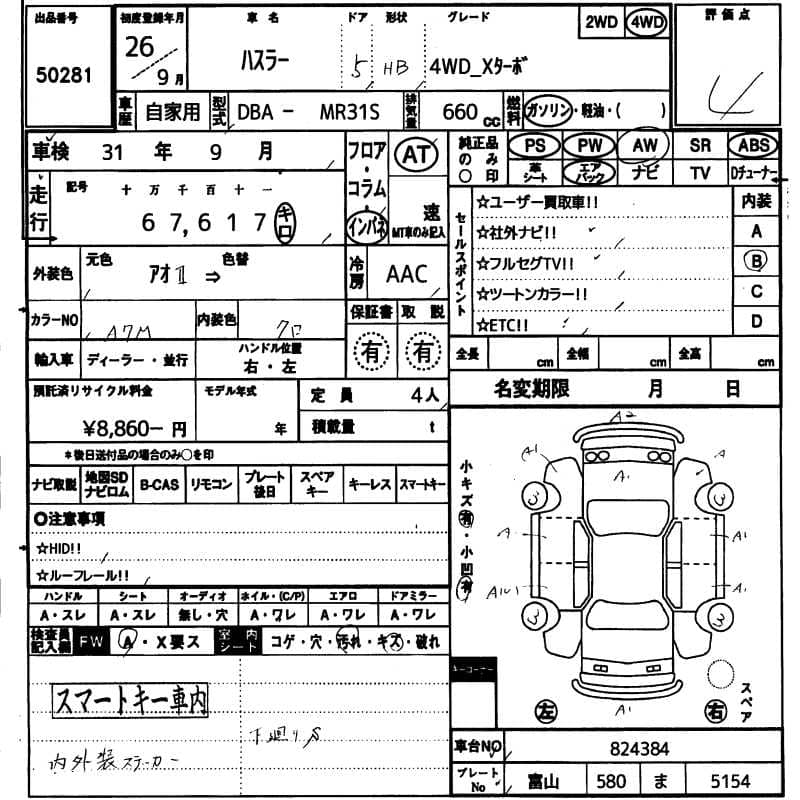 出品番号 初度登録年月 車名 ドア 形状 グレード 2WD 4WD 評価点
50281 26/9月 ハスラー 5 HB 4WD_Xターボ
車歴 自家用 型式 DBA - MR31S 排気量 660cc 燃料 ガソリン・軽油・( )
車検 31年 9月 フロア・コラム・インパネ AT 速 MT車のみ記入
走行 記号 十万千百十一
67,617 キロ
純正品のみ○印 PS PW AW SR ABS
革シート エアバック ナビ TV Dチューナー
セールスポイント 内装
☆ユーザー買取車!!
☆社外ナビ!! A
☆フルセグTV!! B
☆ツートンカラー!! C
☆ETC!! D
外装色 元色 アオⅡ ⇒ 色替 冷房 AAC
カラーNO A7M 内装色 クロ 保証書 有 取説 有
輸入車 ディーラー・並行 ハンドル位置 右・左
全長 cm 全幅 cm 全高 cm
預託済リサイクル料金 モデル年式 定員 4人
¥8,860− 円 年 積載量 t
名変期限 月 日
*後日送付品の場合のみ○を印
ナビ取説 地図SDナビロム B-CAS リモコン プレート後日 スペアキー キーレス スマートキー
○注意事項
☆HID!!
☆ルーフレール!!
ハンドル シート オーディオ ホイル・(C/P) エアロ ドアミラー
A・スレ A・スレ 無し・穴 A・ワレ A・ワレ A・ワレ
検査員記入欄 FW A・X要ス 室内シート コゲ・穴・汚れ・キズ・破れ
スマートキー車内
下廻りS
内外装ステッカー
小キズ 有・小凹 有
A2
A1 A1 A
3 3
A A1
A1
3 3
A1
左 右 スペア
キーコーナー
車台NO 824384
プレートNo 富山 580 ま 5154